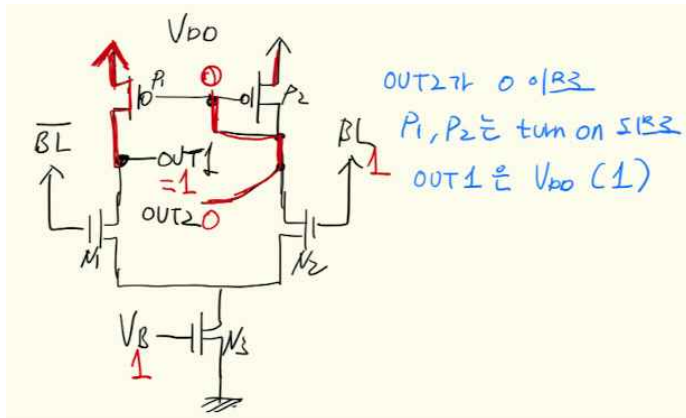 VDD
P1
0
P2
BL
OUT1
=1
OUT2 0
BL
1
N1
N2
VB
1
N3
OUT2가 0 이므로
P1, P2는 turn on 되므로
OUT1은 VDD (1)